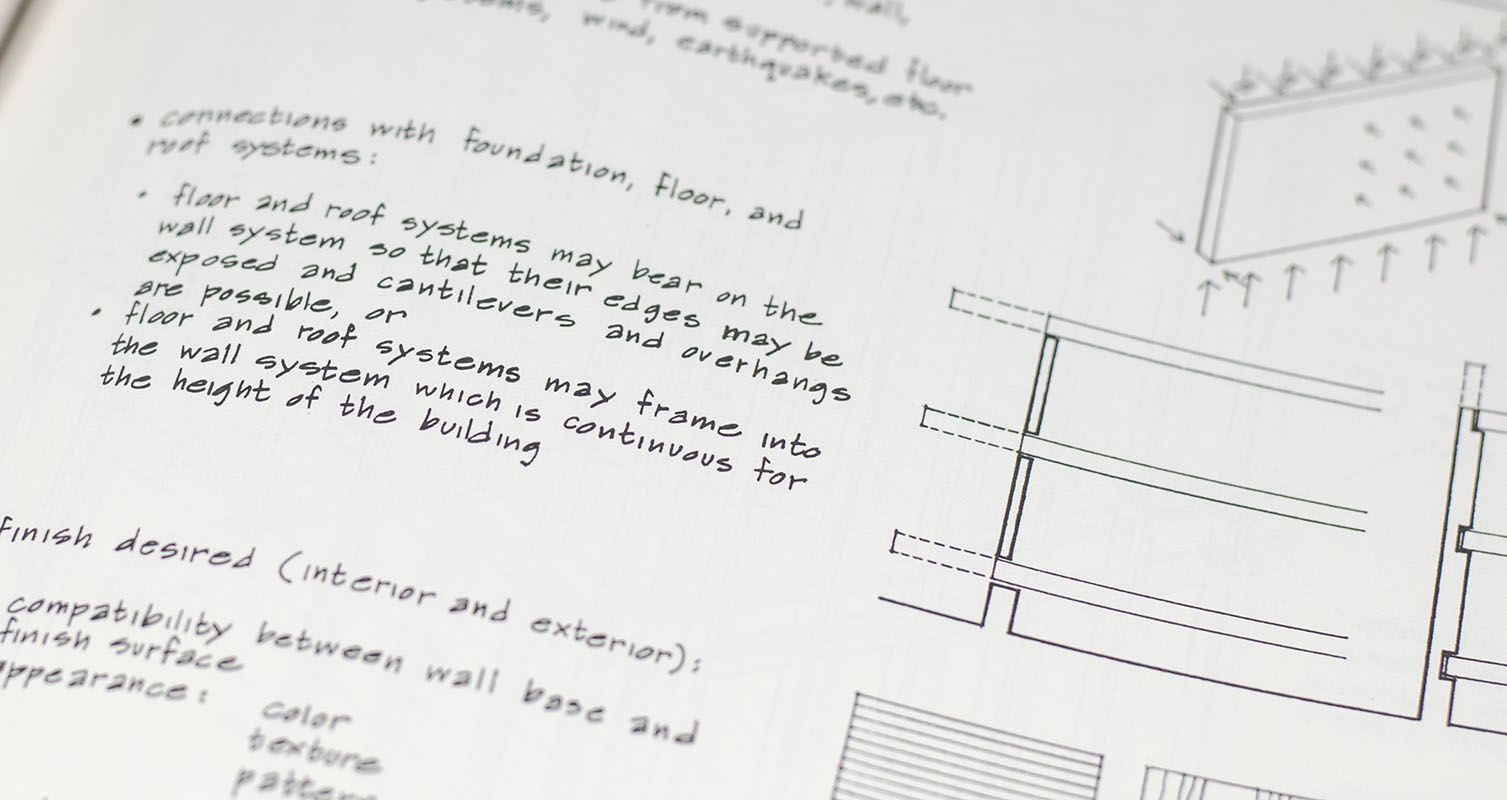 wall,
from supported floor
systems, wind, earthquakes, etc.
• connections with foundation, floor, and
roof systems:
• floor and roof systems may bear on the
wall system so that their edges may be
exposed and cantilevers and overhangs
are possible, or
• floor and roof systems may frame into
the wall system which is continuous for
the height of the building
finish desired (interior and exterior):
compatibility between wall base and
finish surface
appearance:
color
texture